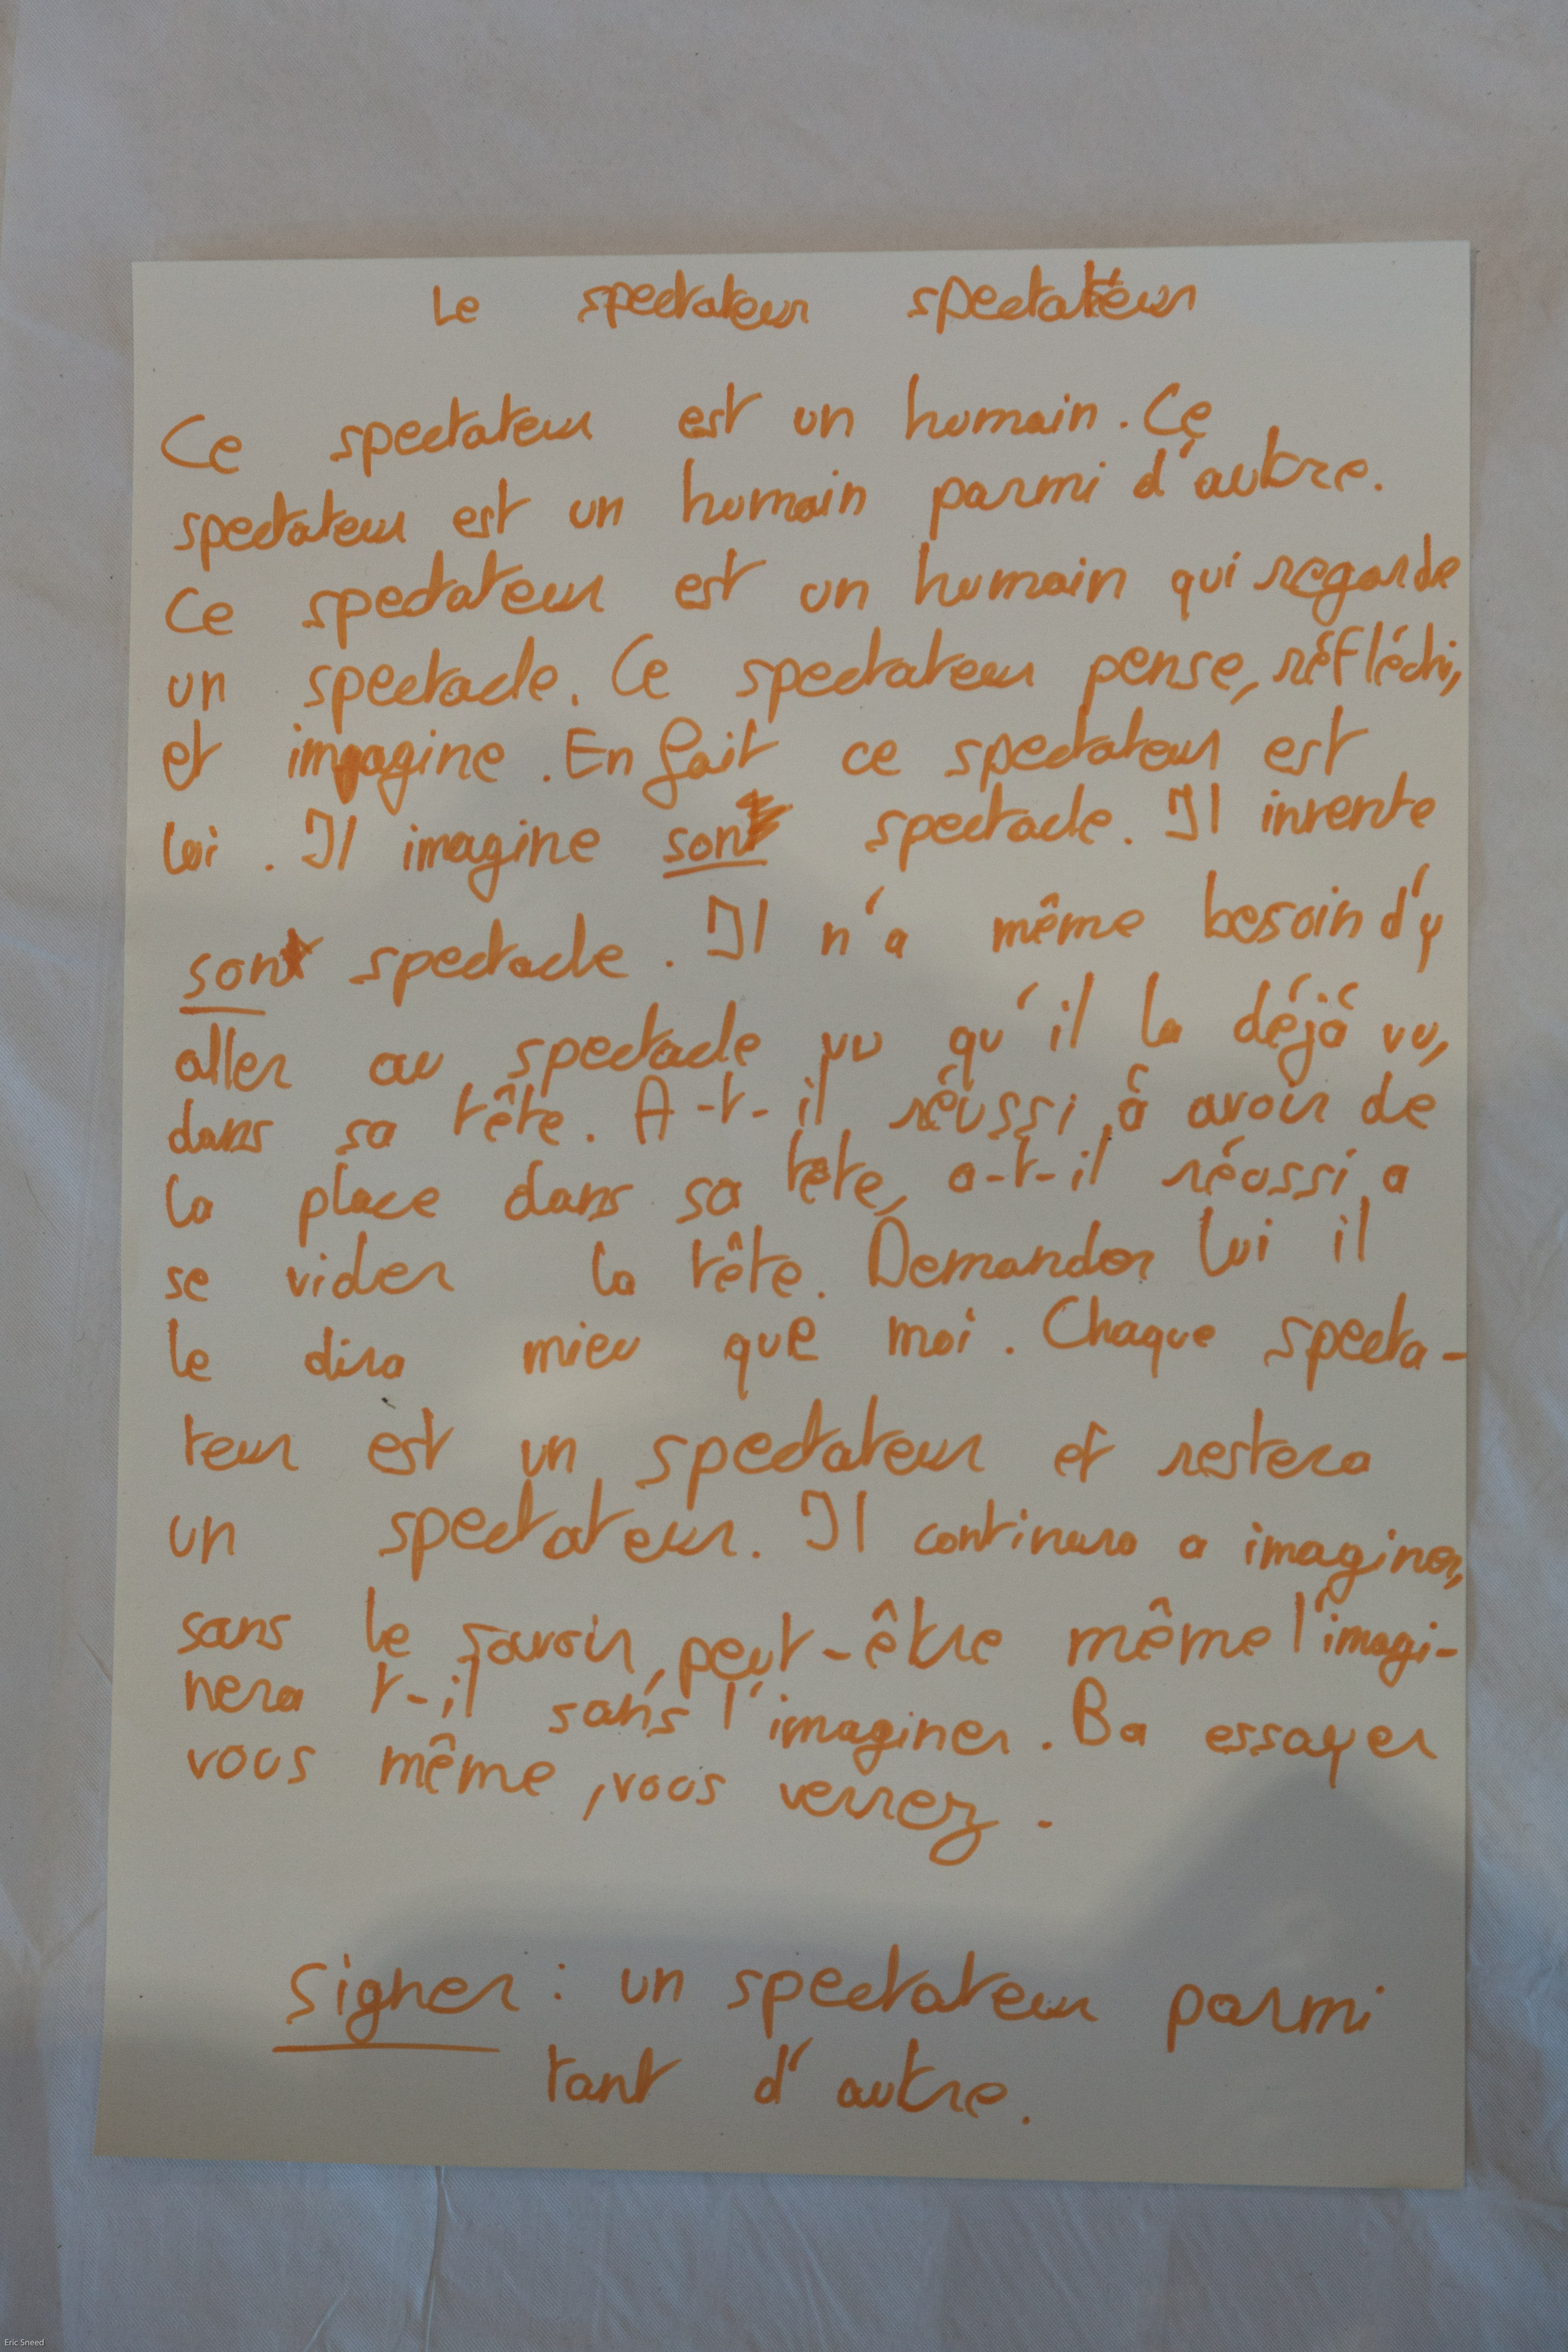 Le spectateur spectateur
Ce spectateur est un humain. Ce
spectateur est un humain parmi d'autre.
Ce spectateur est un humain qui regarde
un spectacle. Ce spectateur pense, réfléchi,
et imagine. En fait ce spectateur est
loi. Il imagine son spectacle. Il invente
son spectacle. Il n'a même besoin d'y
aller au spectacle vu qu'il la déjá vu,
dans sa tête. A-t-il réussi á avoir de
la place dans sa tête, a-t-il réussi a
se vider la tête. Demander lui il
le dira mieu que moi. Chaque specta-
teur est un spectateur et restera
un spectateur. Il continura a imaginer,
sans le savoir, peut-être même l'imagi-
nera t-il sans l'imaginer. Ba essayer
vous même, vous verrez.
Signer : un spectateur parmi
tant d'autre.
Eric Sneed